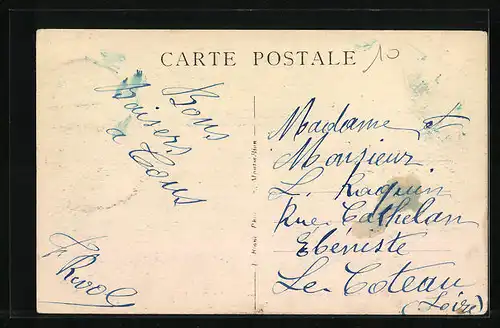 CARTE POSTALE
10
Bons
Baisers
a Tous
Madame et
Monsieur
L. Raquin
Rue Cathelan
Ébéniste
Le Coteau
(Loire)